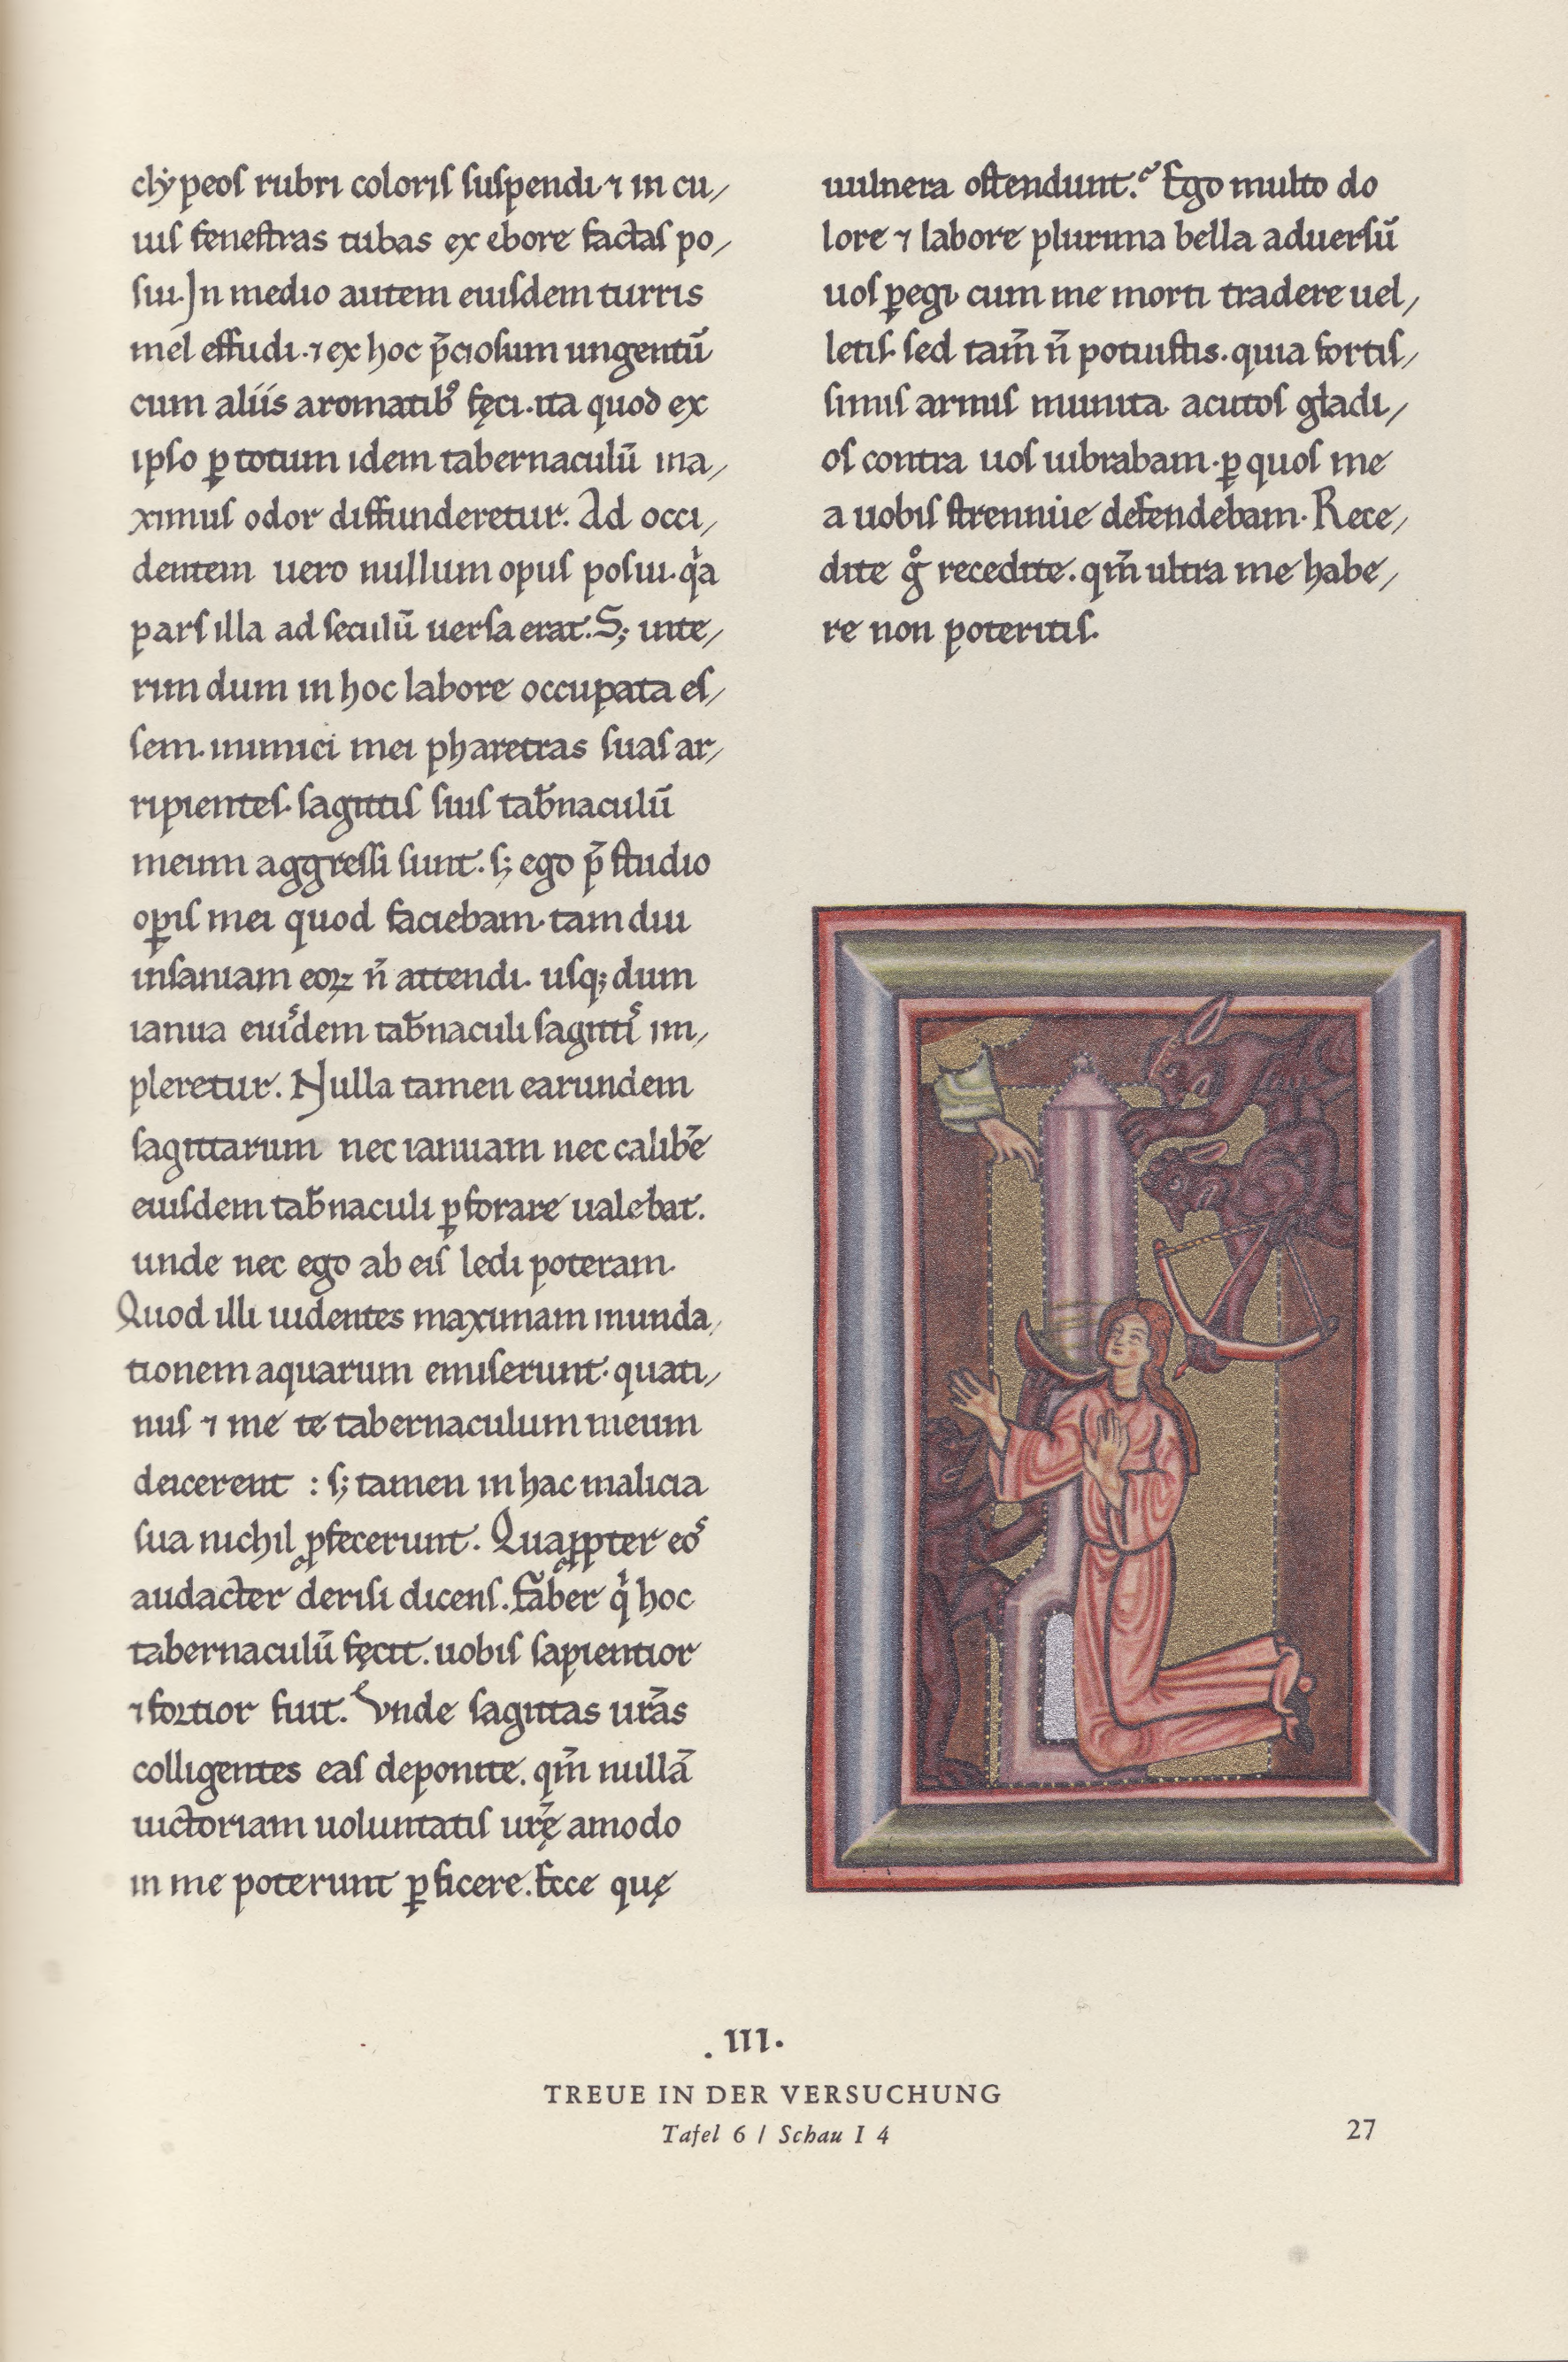 clẏpeoſ rubri coloriſ ſuſpendi·⁊ in cu/
iuſ feneſtras tubas ex ebore factaſ po/
ſui. In medio autem eiuſdem turris
mel effudi·⁊ ex hoc p̄cioſum ungentū
cum aliis aromatib᷒ fęci·ita quod ex
ipſo ꝑ totum idem tabernaculū ma/
ximuſ odor diffunderetur. Ad occi/
dentem uero nullum opuſ poſui·qͥa
parſ illa ad ſeculū uerſa erat. S; inte/
rim dum in hoc labore occupata eſ/
ſem·inimici mei pharetras ſuaſ ar/
ripienteſ·ſagittiſ ſuiſ tab̄naculū
meum aggreſſi ſunt·ſ; ego p̄ ſtudio
oꝑiſ mei quod faciebam·tam diu
inſaniam eoꝝ n̄ attendi· uſq; dum
ianua euiˢdem tab̄naculi ſagittiˢ im/
pleretur. Nulla tamen earundem
ſagittarum nec ianuam nec calibē
eiuſdem tab̄naculi ꝑforare ualebat.
unde nec ego ab eiſ ledi poteram·
Quod illi uidentes maximam inunda/
tionem aquarum emiſerunt·quati/
nuſ ⁊ me te tabernaculum meum
deicerent : ſ; tamen in hac malicia
ſua nichil ꝓfecerunt. Quaꝓpter eoˢ
audacter deriſi dicenſ. Fāber qͥ hoc
tabernaculū fęcit·uobiſ ſapientior
⁊ fortior fuit. Vnde ſagittas ur̄as
colligentes eaſ deponite. qm̄ nullā
uictoriam uoluntatiſ ur̄ę amodo
in me poterunt ꝑficere. Ecce quę
uulnera oſtendunt. Ego multo do
lore ⁊ labore plurima bella aduerſū
uoſ ꝑegi· cum me morti tradere uel/
letiſ· ſed tam̄ n̄ potuiſtis·quia fortiſ/
ſimiſ armiſ munita acutoſ gladi/
oſ contra uoſ uibrabam·ꝑ quoſ me
a uobiſ ſtrennuie defendebam· Rece/
dite gͦ recedite·qm̄ ultra me habe/
re non poteritiſ·
.III.
TREUE IN DER VERSUCHUNG
Tafel 6 / Schau I 4
27